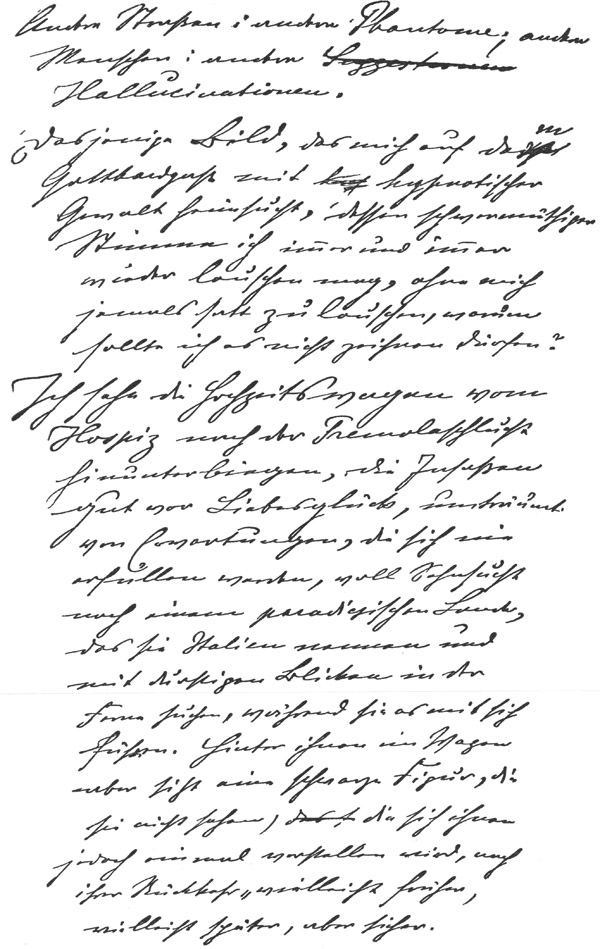 Andre Straßen: andere Phantome; andere
Menschen: andere Suggestionen
Hallucinationen.
Dasjenige Bild, das mich auf dem
Gotthardpaß mit hypnotischer
Gewalt heimsucht, dessen schwermüthiger
Stimme ich immer und immer
wieder lauschen mag, ohne mich
jemals satt zu lauschen, warum
sollte ich es nicht zeichnen dürfen?
Ich sehe die Hochzeitswagen vom
Hospiz nach der Tremolaschlucht
hinunterbiegen, die Insaßen
gut vor Liebesglück, umträumt
von Erwartungen, die sich nie
erfüllen werden, voll Sehnsucht
nach einem paradiesischen Lande,
das sie Italien nennen und
mit durstigen Blicken in der
Ferne suchen, während sie es mit sich
führen. Hinter ihnen im Wagen
aber sitzt eine schwarze Figur, die
sie nicht sehen, die sich ihnen
jedoch einmal vorstellen wird, nach
ihrer Rückkehr, vielleicht früher,
vielleicht später, aber sicher.